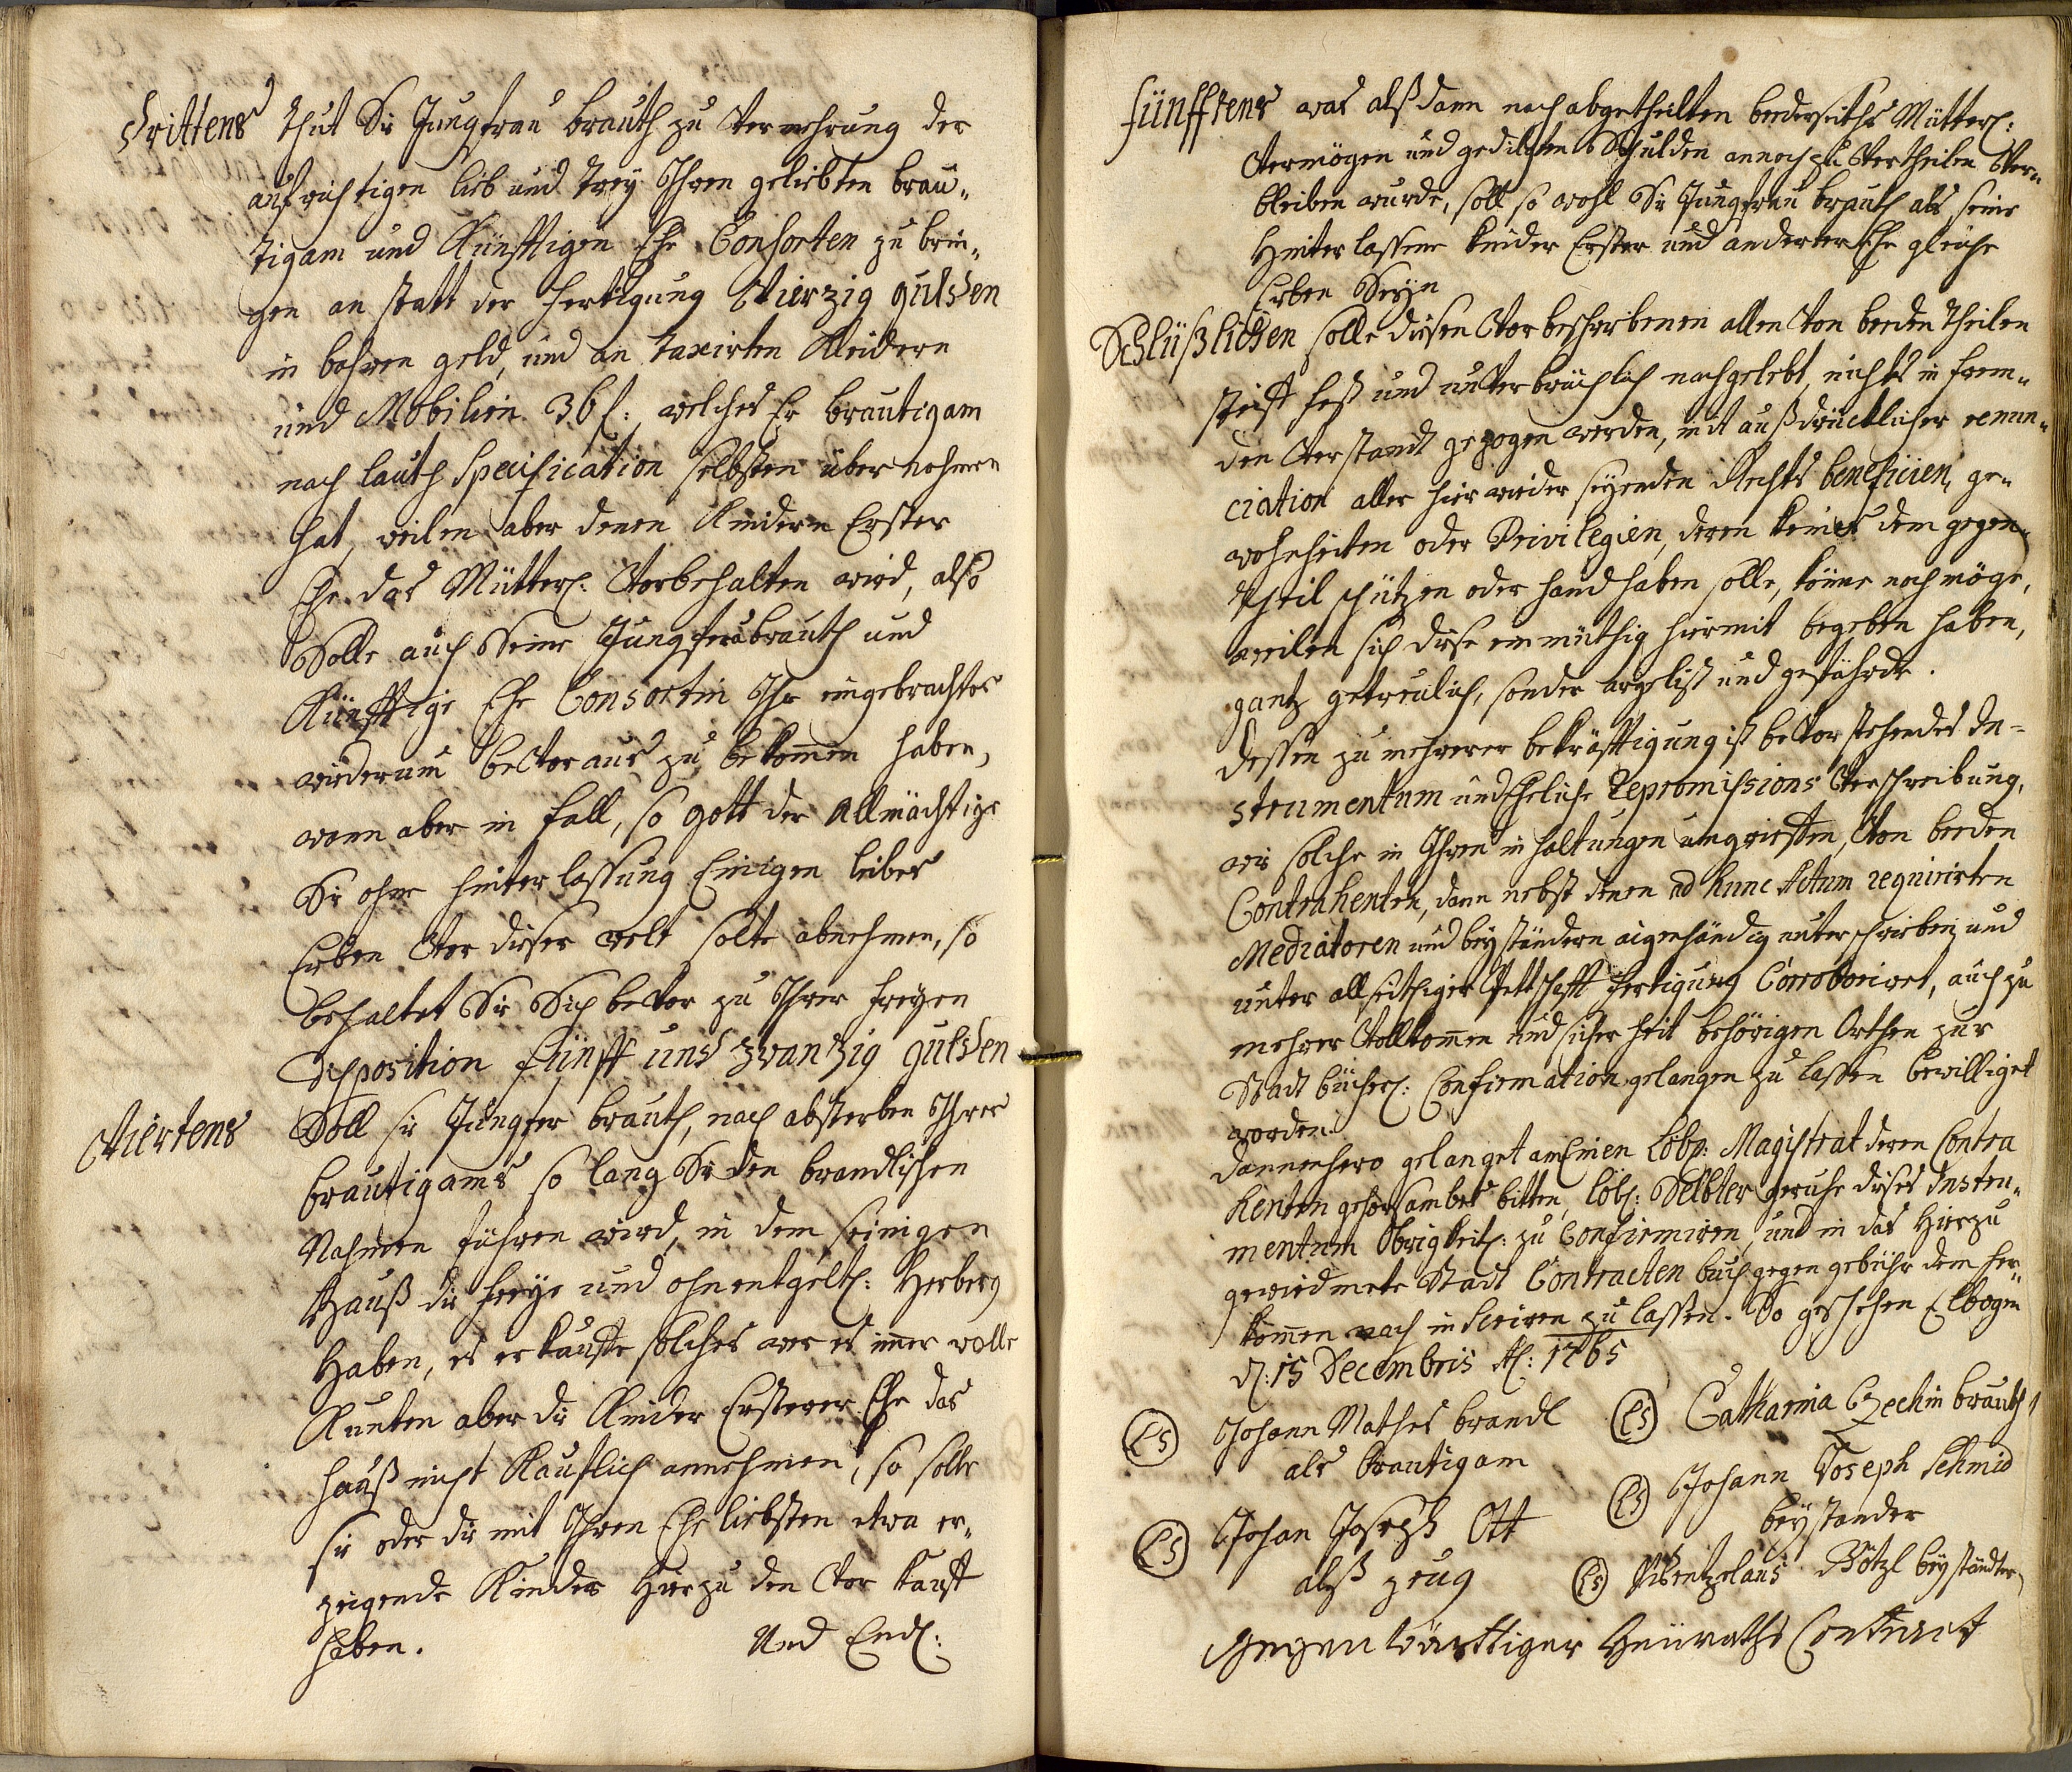 Drittens thut Sie Jungfrau brauth zu Vermehrung der
aufrichtigen lieb und trey Ihren geliebten bräu-
tigam und Künfftigen Ehe Consorten zu brin-
gen an statt der fertigung Vierzig gulden
in bahren geld, und an taxirten Kleidern
und Mobilien 36 f: welches Er bräutigam
nach lauth Specification selbsten übernohmen
hat, weilen aber denen Kindern Erster
Ehe das Mütterl: Vorbehalten wird, also
Solle auch Seine Jungfer brauth und
Künfftige Ehe Consortin Ihr eingebrachtes
wiederum bevoraus zu bekommen haben,
wann aber in fall, so Gott der Allmächtige
Sie ohne hinterlassung Einigen leibes
Erben Von dieser welt solte abnehmen, so
behaltet Sie Sich bevor zu Ihrer freyen
Disposition fünff und zwantzig gulden
Viertens Soll sie Jungfer brauth, nach absterben Ihres
bräutigams so lang Sie den brandlischen
Nahmen führen wird, in dem seinigen
Hauß die freye und ohnentgeltl: Herberg
Haben, es erkauffe solches wer es immer wolle
Kunten aber die Kinder Ersterer Ehe das
Hauß nicht Kauflich annehmen, so solle
sie oder die mit Ihren Ehe liebsten etwa er-
zeigende Kinder hierzu den Vor Kauff
haben. Und Endl:
fünfftens was alßdann nach abgetheilten beederseiths Mütterl:
Vermögen und gedilgten Schulden annoch zu Vertheilen Ver-
bleiben wurde, soll so wohl Sie Jungfrau brauth als seine
Hinterlassene Kinder Erster und anderter Ehe gleiche
Erben Seyn
Schlüßlichen solle diesen Vorbeschribenen allen Von beeden theilen
steiff fest und unverbrüchlich nachgelebt, nichts in frem-
den Verstandt gezogen werden, mit außdrücklicher renun-
ciation aller hierwieder seyenden Rechts beneficien, ge-
wohnheiten oder Privilegien, deren keines dem gegen-
theil schützen oder handhaben solle, könne noch möge,
weilen sich diese einmüthig hiermit begeben haben,
gantz getreulich, sonder argelist und gefährde.
Dessen zu mehrerer bekräfftigung ist bevorstehendes In-
strumentum und Eheliche Repromissions Verschreibung,
wie solche in Ihren inhaltungen Von beeden
Contrahenten, dann nebst denen ad hunc Actum requirirten
Mediatoren und beyständern aigenhändig unterschrieben und
unter allseithiger Pettschafft fertigung Corroborirt, auch zu
mehrer Vollkommen und sicherheit behörigen Orthen zur
Stadt büchel: Confirmation gelangen zu lassen bewilliget
worden.
Dannenhero gelanget an Einen Löbl: Magistrat deren Contra
henten gehorsambes bitten, löbl: Selbter geruhe dieses Instru-
mentum Obrigkeitl: zu Confirmiren, und in das hierzu
gewiedmete Stadt Contracten buch gegen gebühr dem her-
kommen nach inseriren zu lassen. So geschehen Elbogen
d: 15 Decembris A: 1765
(LS) Johann Mathes brandl
als brautigam
(LS) Catharina Czechin brauth
(LS) Johan Joseph Ott
alß zeug
(LS) Johann Joseph Schmid
beystander
(LS) Wentzelaus Götzl beyständter
Gegenwärttiger Heüraths Contract